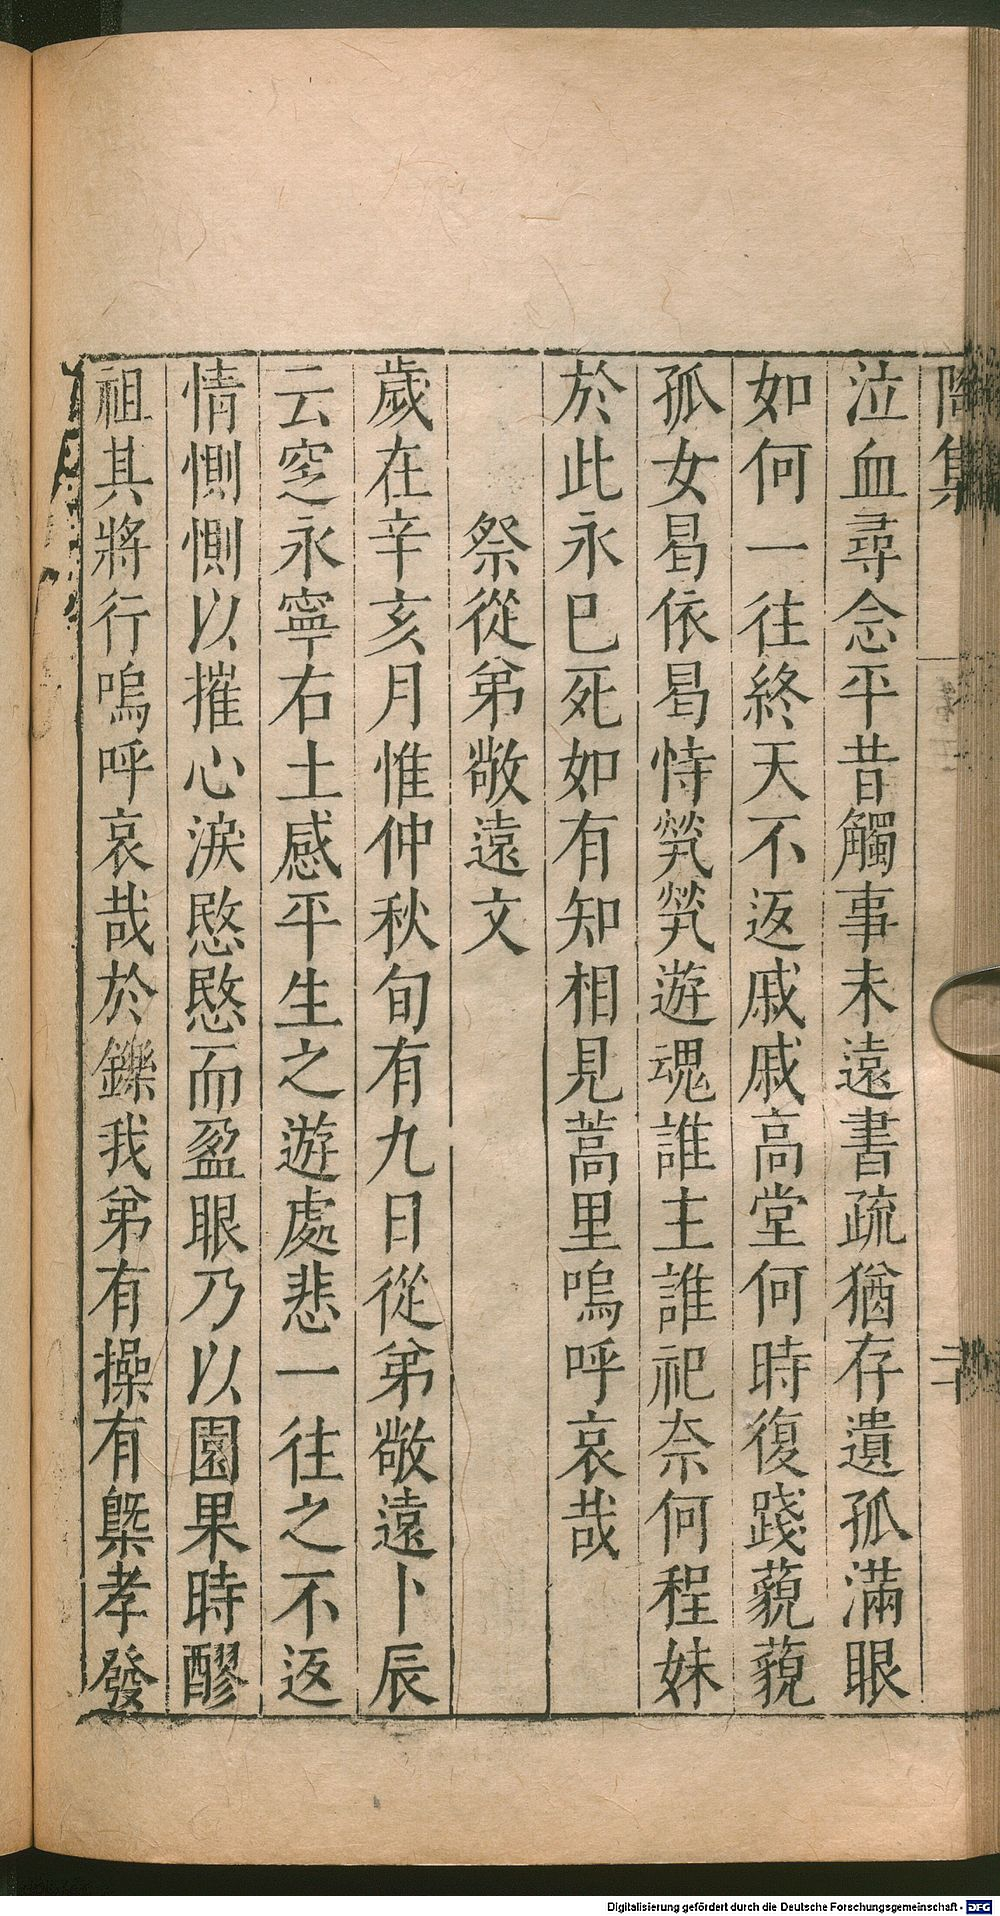 陶集
二十
泣血尋念平昔觸事未遠書疏猶存遺孤滿眼
如何一往終天不返戚戚高堂何時復踐藐藐
孤女曷依曷恃煢煢遊魂誰主誰祀奈何程妹
於此永已死如有知相見蒿里嗚呼哀哉
祭從弟敬遠文
歲在辛亥月惟仲秋旬有九日從弟敬遠卜辰
云窆永寧右土感平生之遊處悲一往之不返
情惻惻以摧心淚愍愍而盈眼乃以園果時醪
祖其將行嗚呼哀哉於鑠我弟有操有槩孝發
Digitalisierung gefördert durch die Deutsche Forschungsgemeinschaft - DFG